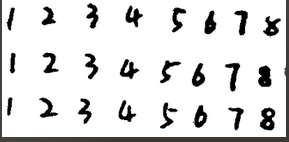 1 2 3 4 5 6 7 8
1 2 3 4 5 6 7 8
1 2 3 4 5 6 7 8